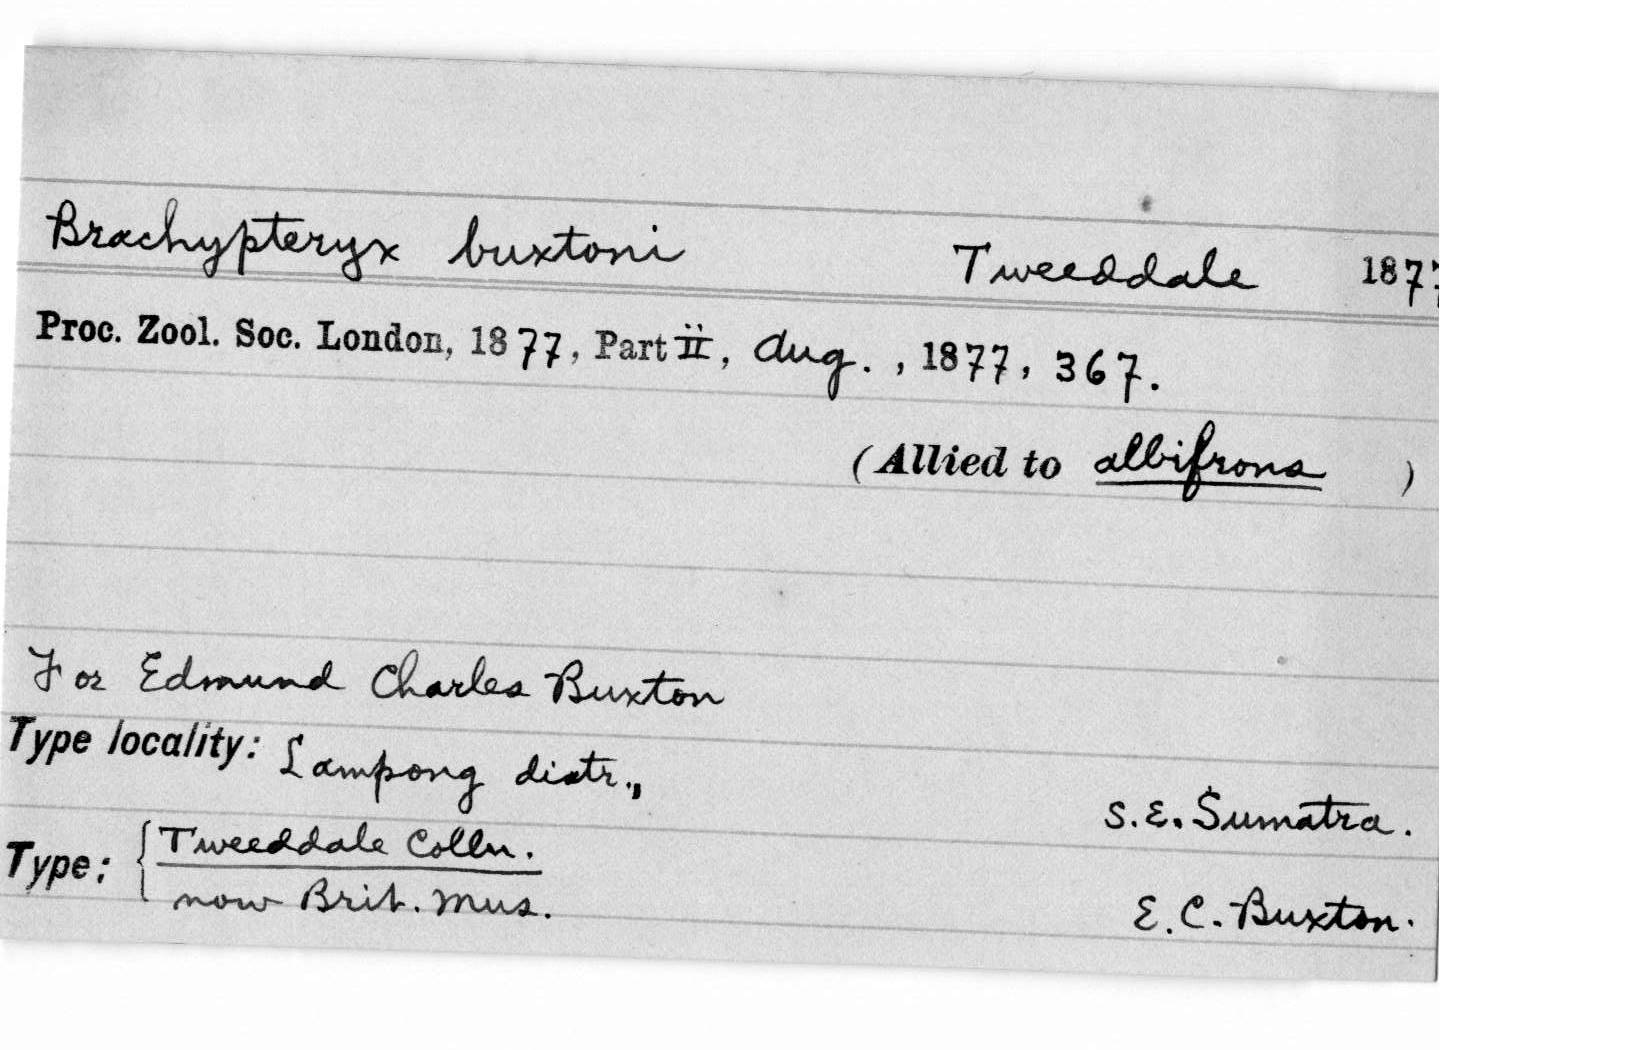 Brachypteryx buxtoni Tweeddale 1877
Proc. Zool. Soc. London, 1877, Part ii, Aug., 1877, 367.
(Allied to albifrons )
For Edmund Charles Buxton
Type locality: Lampong distr., S.E. Sumatra.
Type: { Tweeddale Colln.
now Brit. Mus. E. C. Buxton.